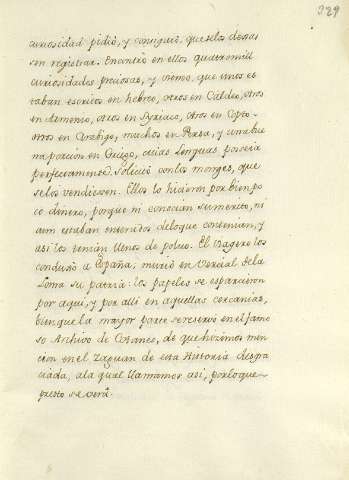 329
curiosidad pidió, y consiguió, que se los dexas
sen registrar. Encontró en ellos quatro mill
curiosidades preciosas, y vemos, que unos es
taban escritos en hebreo, otros en Caldeo, otros
en Armenio, otros en Syriaco, otros en Copto
otros en Arabigo, muchos en Persa, y una bue
na porcion en Griego, cuias lenguas poseia
perfectamente. Solicitó con los monges, que
se los vendiessen. Ellos lo hicieron por bien po
co dinero, porque ni conocian su merito, ni
aun estaban enterados de loque contenian, y
asi los tenian llenos de polvo. El Viagero los
conduxo a España; murió en Vercial de la
Loma su patria: los papeles se esparcieron
por aqui, y por alli en aquellas cercanias,
bien que la mayor parte se reservó en el famo
so Archivo de Cotanes, de que hicimos men
cion en el Zaguan de esta Historia despa
ciada, a la qual llamamos asi, por loque
presto se verá.